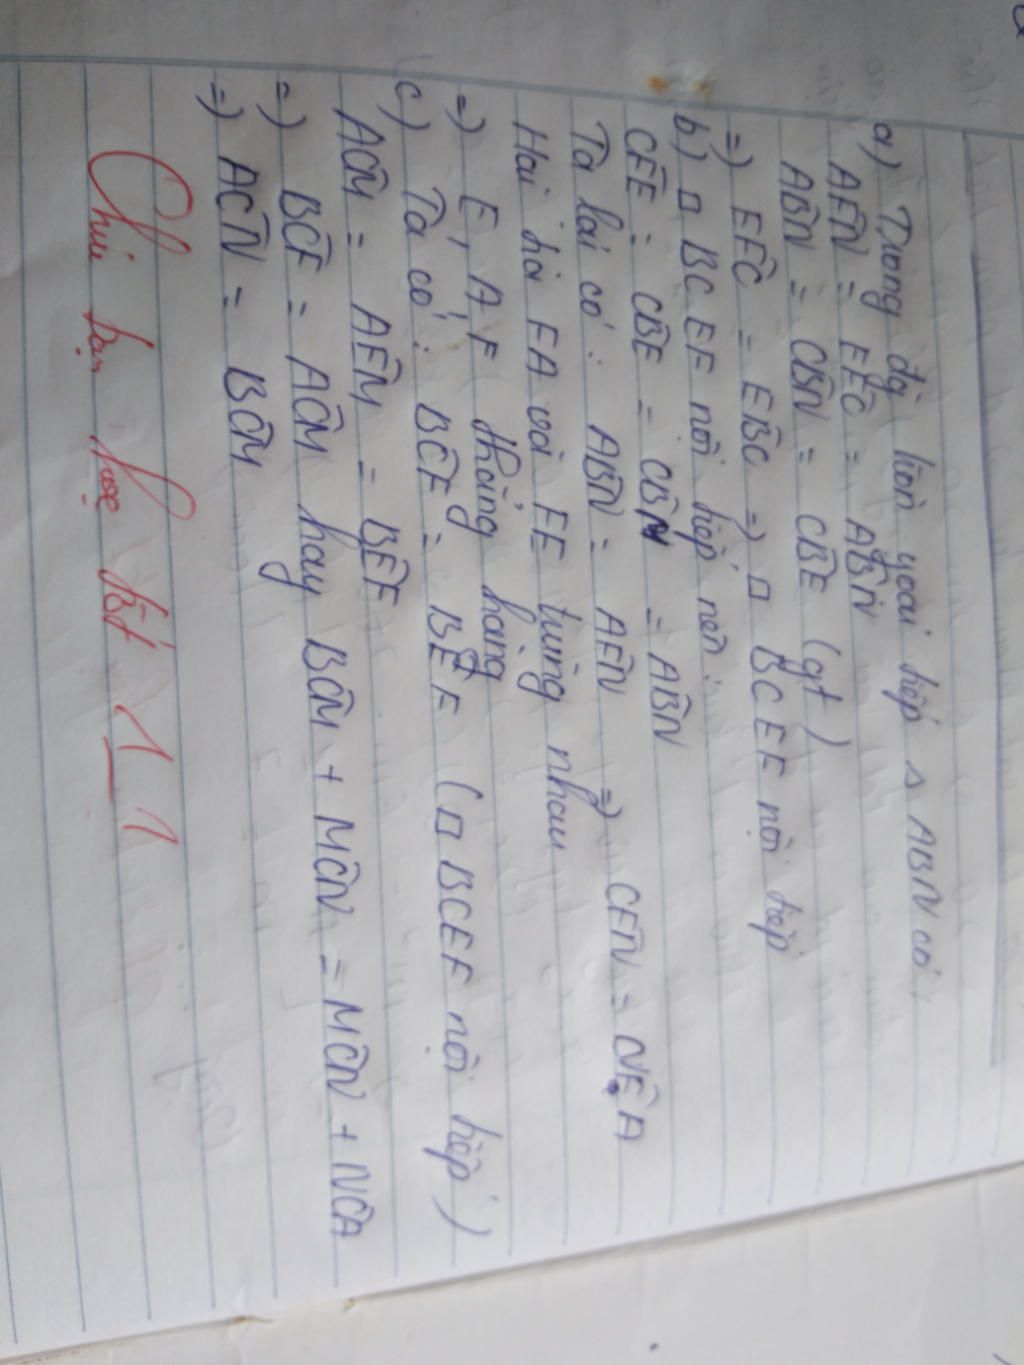 a) Trong đg tròn ngoại tiếp △ ABN có
AFN = EFC = ABN
ABN = CBN = CBE (gt)
=) EFC = EBC =) □ BCEF nội tiếp
b) □ BCEF nội tiếp nên:
CEF = CBF = CBN = ABN
Ta lại có: ABN = AFN =) CEN = NEA
Hai tia EA và EF trùng nhau
=) E, A, F thẳng hàng
c) Ta có: BCF = BEF (□ BCEF nội tiếp)
ACM = AEM = BEF
=) BCF = ACM hay BCM + MCN = MCN + NCA
=) ACN = BCM
Chúc bạn học tốt